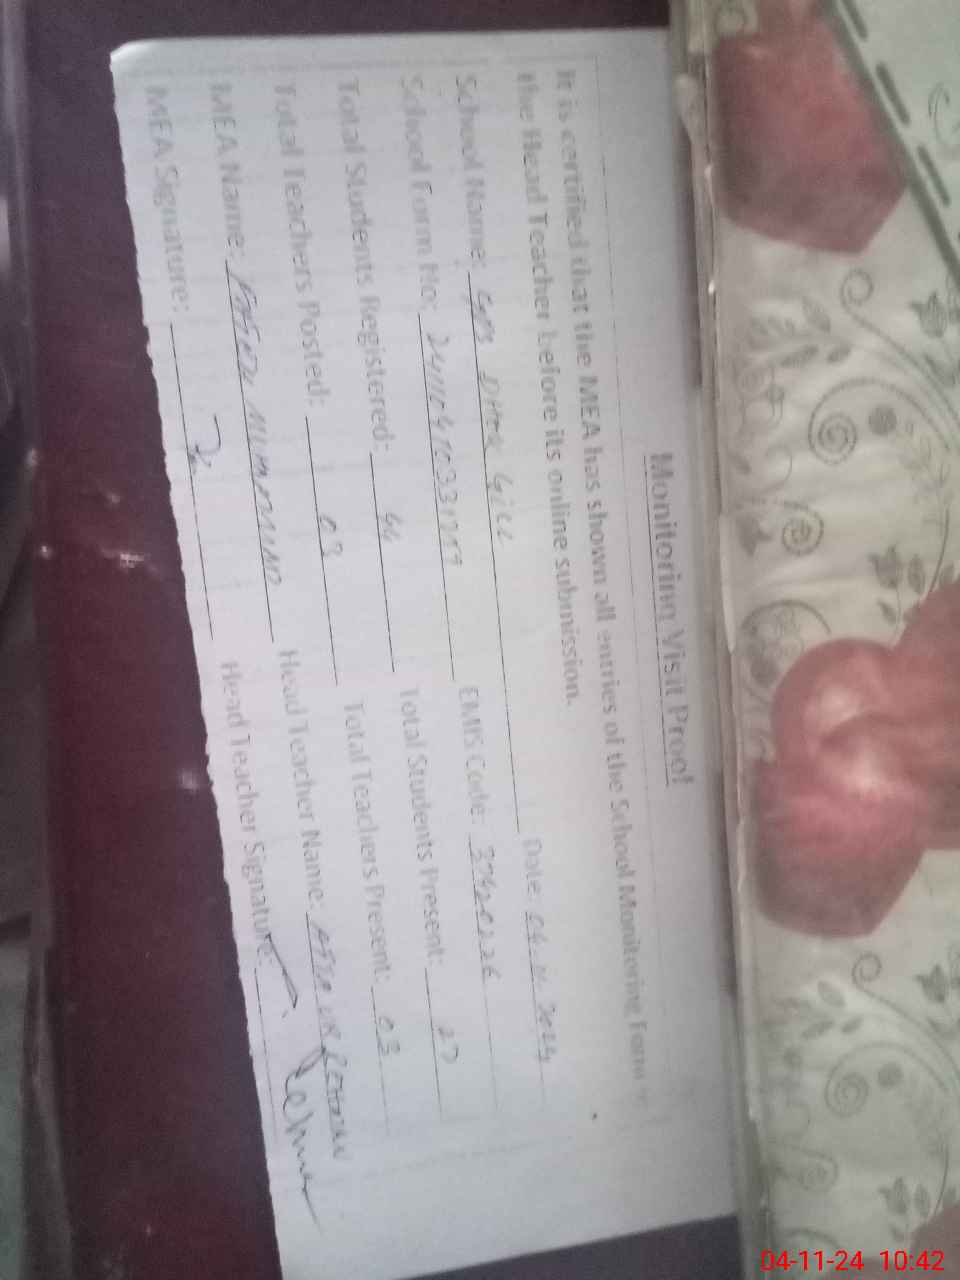 Monitoring Visit Proof
It is certified that the MEA has shown all entries of the School Monitoring Form to
the Head Teacher before its online submission.
School Name: GPS DHER Gill Date: 04.11.2024
School Form No: EMIS Code:
Total Students Registered: Total Students Present: 27
Total Teachers Posted: 03 Total Teachers Present: 03
MEA Name: MUHAMMAD Head Teacher Name: ATTA UR REHMAN
MEA Signature: Head Teacher Signature:
04-11-24 10:42